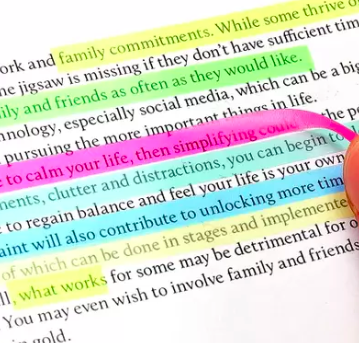 ork and family commitments. While some thrive o
ne jigsaw is missing if they don't have sufficient tim
ily and friends as often as they would like.
hnology, especially social media, which can be a big
pursuing the more important things in life.
e to calm your life, then simplifying could the p
ments, clutter and distractions, you can begin to
to regain balance and feel your life is your own
aint will also contribute to unlocking more tim
of which can be done in stages and implemente
ll, what works for some may be detrimental for o
You may even wish to involve family and friends
in gold.